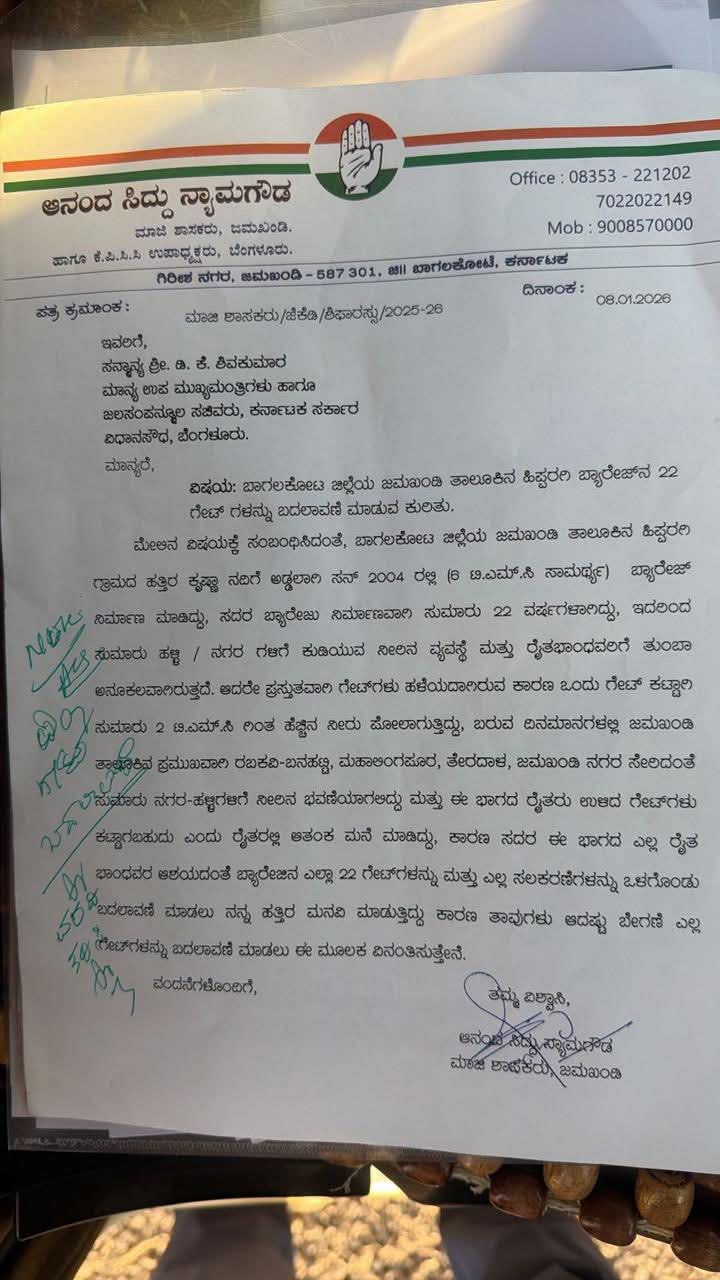 ಆನಂದ ಸಿದ್ದು ನ್ಯಾಮಗೌಡ
ಮಾಜಿ ಶಾಸಕರು, ಜಮಖಂಡಿ.
ಹಾಗೂ ಕೆ.ಪಿ.ಸಿ.ಸಿ ಉಪಾಧ್ಯಕ್ಷರು, ಬೆಂಗಳೂರು.
Office : 08353 - 221202
7022022149
Mob : 9008570000
ಗಿರೀಶ ನಗರ, ಜಮಖಂಡಿ – 587 301, ಜಿ|| ಬಾಗಲಕೋಟೆ, ಕರ್ನಾಟಕ
ಪತ್ರ ಕ್ರಮಾಂಕ : ಮಾಜಿ ಶಾಸಕರು/ಜೆಕೆಡಿ/ಶಿಫಾರಸ್ಸು/2025-26
ದಿನಾಂಕ : 08.01.2026
ಇವರಿಗೆ,
ಸನ್ಮಾನ್ಯ ಶ್ರೀ. ಡಿ. ಕೆ. ಶಿವಕುಮಾರ
ಮಾನ್ಯ ಉಪ ಮುಖ್ಯಮಂತ್ರಿಗಳು ಹಾಗೂ
ಜಲಸಂಪನ್ಮೂಲ ಸಚಿವರು, ಕರ್ನಾಟಕ ಸರ್ಕಾರ
ವಿಧಾನಸೌಧ, ಬೆಂಗಳೂರು.
ಮಾನ್ಯರೆ,
ವಿಷಯ: ಬಾಗಲಕೋಟ ಜಿಲ್ಲೆಯ ಜಮಖಂಡಿ ತಾಲೂಕಿನ ಹಿಪ್ಪರಗಿ ಬ್ಯಾರೇಜ್‌ನ 22
ಗೇಟ್ ಗಳನ್ನು ಬದಲಾವಣೆ ಮಾಡುವ ಕುರಿತು.
ಮೇಲಿನ ವಿಷಯಕ್ಕೆ ಸಂಬಂಧಿಸಿದಂತೆ, ಬಾಗಲಕೋಟ ಜಿಲ್ಲೆಯ ಜಮಖಂಡಿ ತಾಲೂಕಿನ ಹಿಪ್ಪರಗಿ
ಗ್ರಾಮದ ಹತ್ತಿರ ಕೃಷ್ಣಾ ನದಿಗೆ ಅಡ್ಡಲಾಗಿ ಸನ್ 2004 ರಲ್ಲಿ (6 ಟಿ.ಎಮ್.ಸಿ ಸಾಮರ್ಥ್ಯ) ಬ್ಯಾರೇಜ್
ನಿರ್ಮಾಣ ಮಾಡಿದ್ದು, ಸದರ ಬ್ಯಾರೇಜು ನಿರ್ಮಾಣವಾಗಿ ಸುಮಾರು 22 ವರ್ಷಗಳಾಗಿದ್ದು, ಇದರಿಂದ
ಸುಮಾರು ಹಳ್ಳಿ / ನಗರ ಗಳಿಗೆ ಕುಡಿಯುವ ನೀರಿನ ವ್ಯವಸ್ಥೆ ಮತ್ತು ರೈತಭಾಂಧವರಿಗೆ ತುಂಬಾ
ಅನೂಕಲವಾಗಿರುತ್ತದೆ. ಆದರೇ ಪ್ರಸ್ತುತವಾಗಿ ಗೇಟ್‌ಗಳು ಹಳೆಯದಾಗಿರುವ ಕಾರಣ ಒಂದು ಗೇಟ್ ಕಟ್ಟಾಗಿ
ಸುಮಾರು 2 ಟಿ.ಎಮ್.ಸಿ ಗಿಂತ ಹೆಚ್ಚಿನ ನೀರು ಪೋಲಾಗುತ್ತಿದ್ದು, ಬರುವ ದಿನಮಾನಗಳಲ್ಲಿ ಜಮಖಂಡಿ
ತಾಲೂಕಿನ ಪ್ರಮುಖವಾಗಿ ರಬಕವಿ-ಬನಹಟ್ಟಿ, ಮಹಾಲಿಂಗಪೂರ, ತೇರದಾಳ, ಜಮಖಂಡಿ ನಗರ ಸೇರಿದಂತೆ
ಸುಮಾರು ನಗರ-ಹಳ್ಳಿಗಳಿಗೆ ನೀರಿನ ಭವಣಿಯಾಗಲಿದ್ದು ಮತ್ತು ಈ ಭಾಗದ ರೈತರು ಉಳಿದ ಗೇಟ್‌ಗಳು
ಕಟ್ಟಾಗಬಹುದು ಎಂದು ರೈತರಲ್ಲಿ ಆತಂಕ ಮನೆ ಮಾಡಿದ್ದು, ಕಾರಣ ಸದರ ಈ ಭಾಗದ ಎಲ್ಲ ರೈತ
ಭಾಂಧವರ ಆಶಯದಂತೆ ಬ್ಯಾರೇಜಿನ ಎಲ್ಲಾ 22 ಗೇಟ್‌ಗಳನ್ನು ಮತ್ತು ಎಲ್ಲ ಸಲಕರಣೆಗಳನ್ನು ಒಳಗೊಂಡು
ಬದಲಾವಣಿ ಮಾಡಲು ನನ್ನ ಹತ್ತಿರ ಮನವಿ ಮಾಡುತ್ತಿದ್ದು ಕಾರಣ ತಾವುಗಳು ಆದಷ್ಟು ಬೇಗಣಿ ಎಲ್ಲ
ಗೇಟ್‌ಗಳನ್ನು ಬದಲಾವಣೆ ಮಾಡಲು ಈ ಮೂಲಕ ವಿನಂತಿಸುತ್ತೇನೆ.
ವಂದನೆಗಳೊಂದಿಗೆ,
ತಮ್ಮ ವಿಶ್ವಾಸಿ,
ಆನಂದ ಸಿದ್ದು ನ್ಯಾಮಗೌಡ
ಮಾಜಿ ಶಾಸಕರು, ಜಮಖಂಡಿ